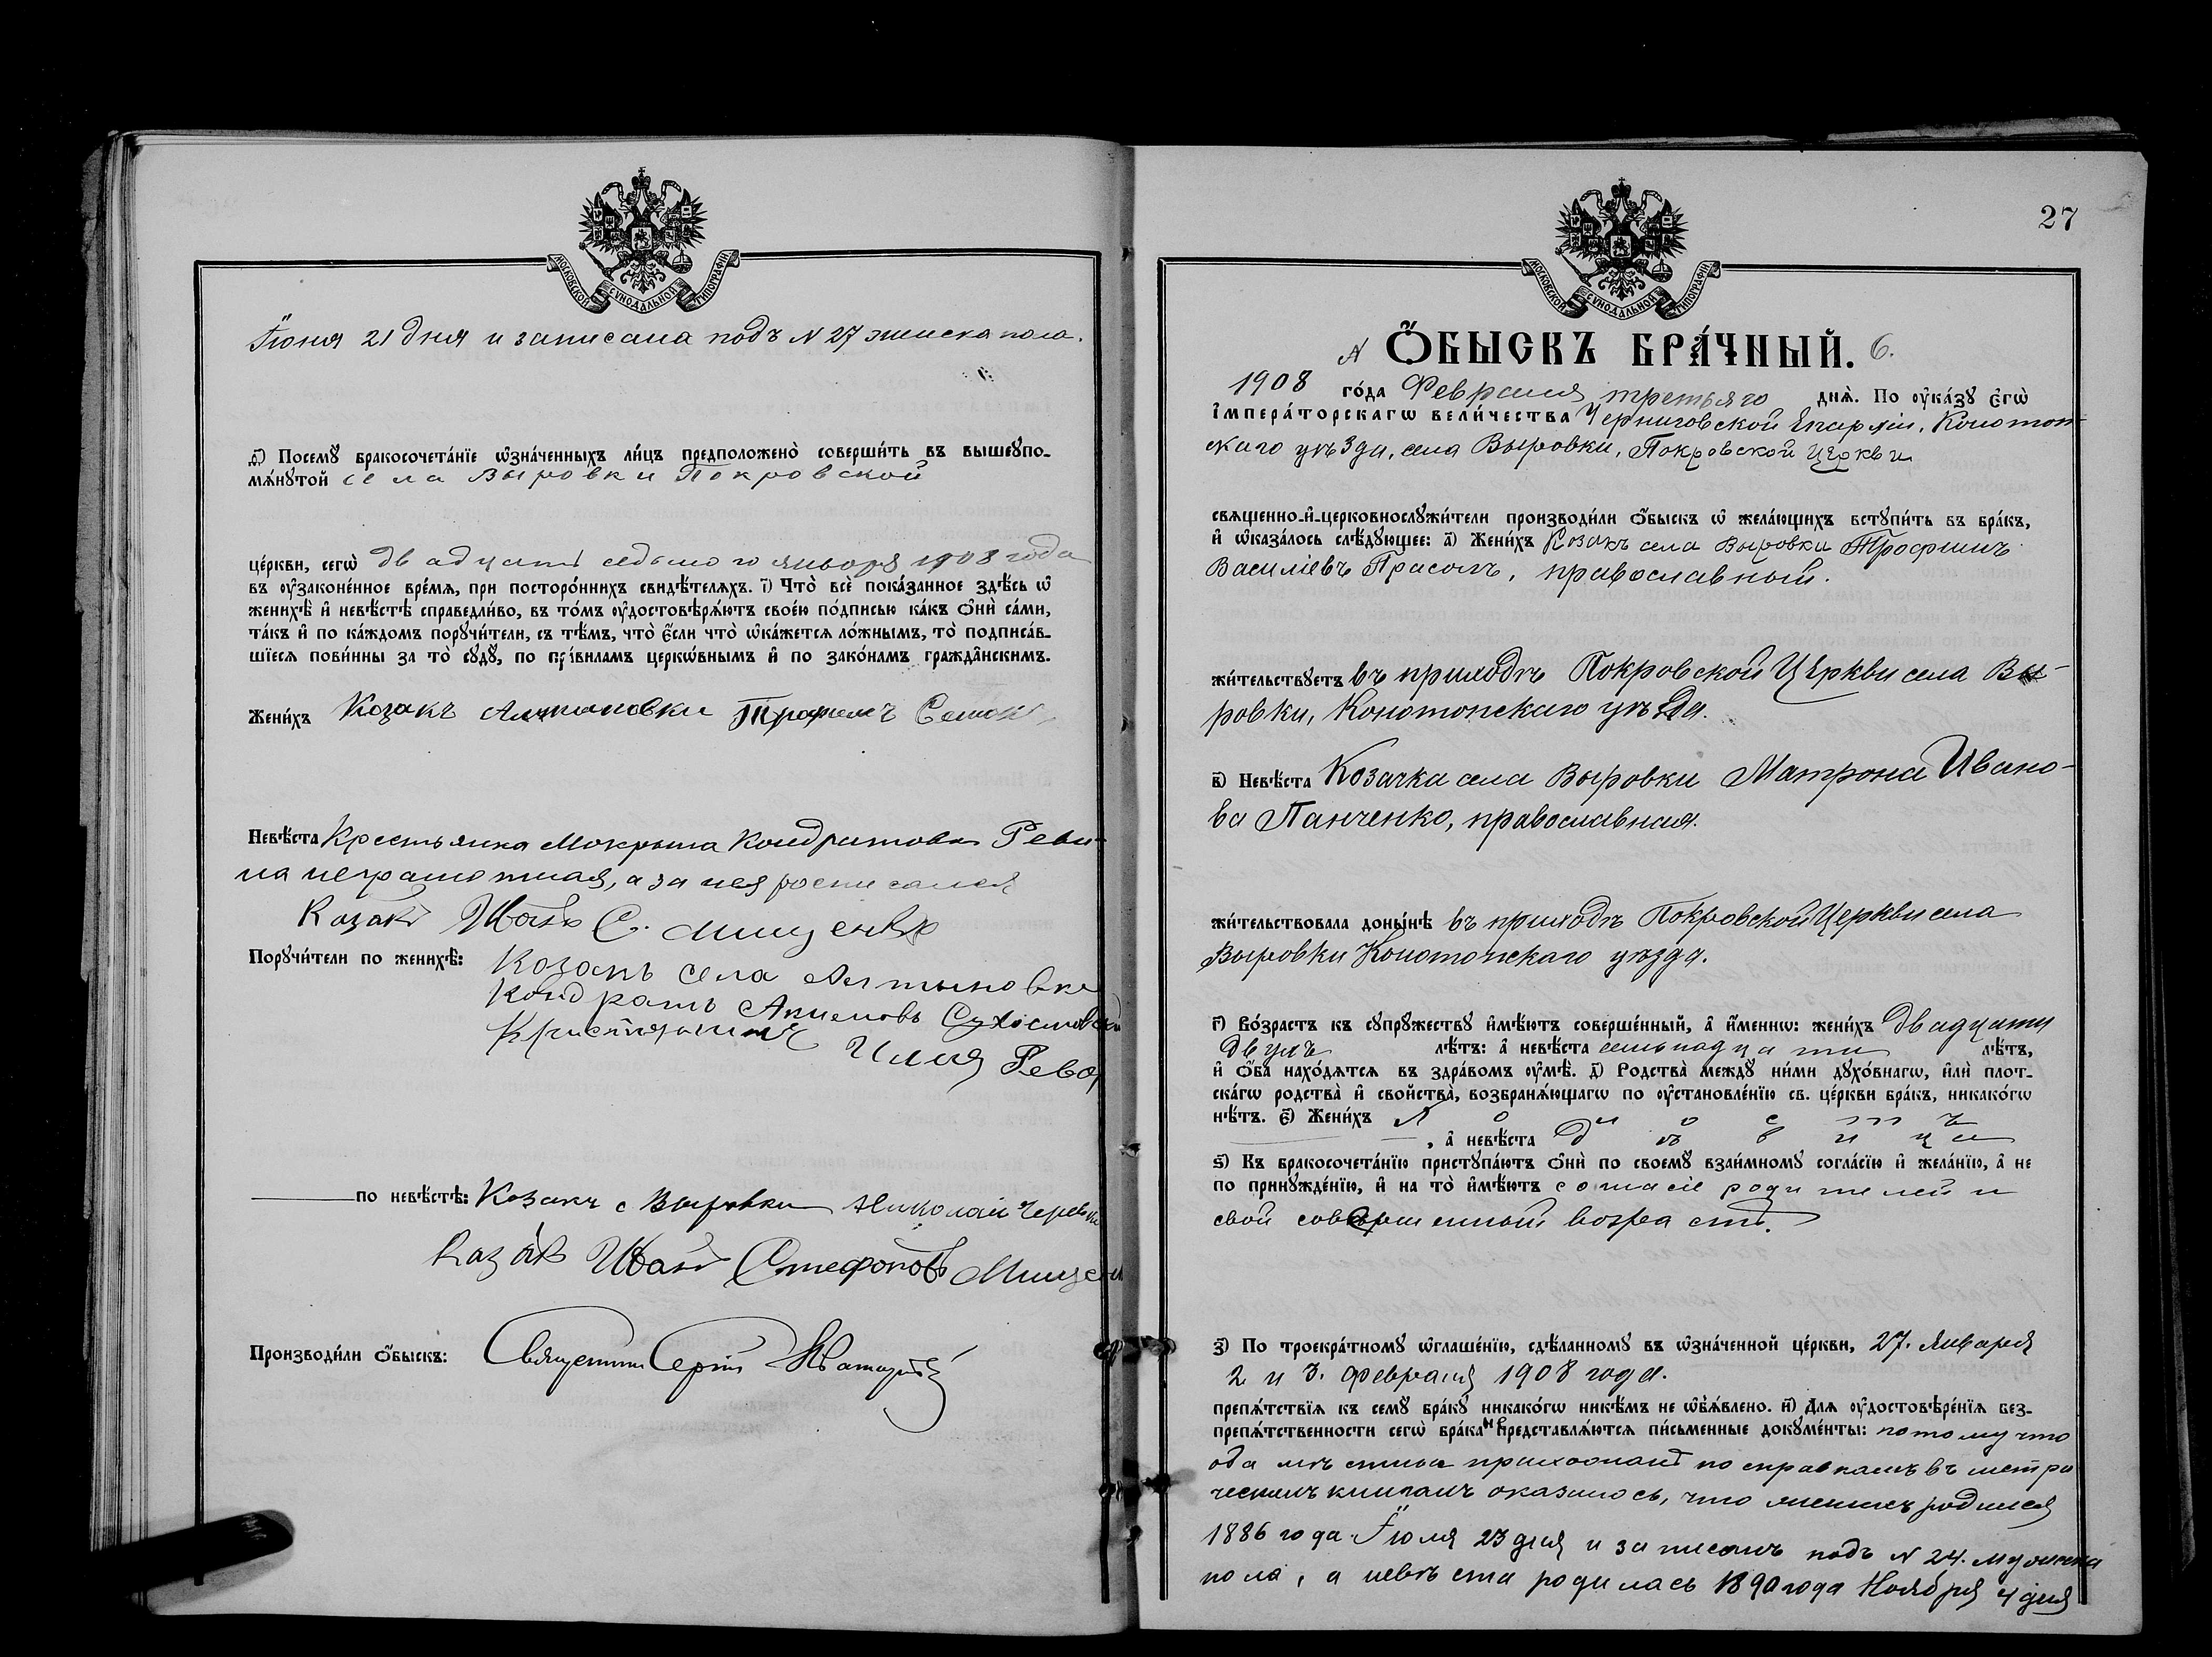 МОСКОВСКОЙ СѴНОДАЛЬНОЙ ТИПОГРАФІИ
Іюня 21 дня и записана подъ N 27 женска пола.
д҃) Посемꙋ бракосочета́нїе ѡ҆зна́ченныхъ ли́цъ предположено̀ соверши́ть въ вышеꙋпо-
мѧ́нꙋтой села Выровки Покровской
це́ркви, сегѡ̀ двадцать седьмого января 1908 года
въ ᲂу҆законе́нное вре́мѧ, при посторо́ннихъ свидѣ́телѧхъ. і҃) Что̀ всѐ пока́занное здѣ́сь ѡ҆
женихѣ̀ и҆ невѣ́стѣ справедли́во, въ то́мъ ᲂу҆достовѣрѧ́ютъ свое́ю по́дписью ка́къ ѻ҆нѝ са́ми,
та́къ и҆ по ка́ждомъ порꙋчи́тели, съ тѣ́мъ, что̀ є҆́сли что̀ ѡ҆ка́жетсѧ ло́жнымъ, то̀ подписа́в-
шїесѧ пови́нны за то̀ сꙋдꙋ̀, по пра́виламъ церко́внымъ и҆ по зако́намъ гражда́нскимъ.
Жени́хъ Козакъ Алтыновки Трофимъ
Невѣ́ста Крестьянка Мокрына Кондратова Реви-
на неграмотная, а за нея росписался
Козакъ Иванъ С. Мищенко
Порꙋчи́тели по женихѣ̀: Козакъ села Алтыновки
Кондратъ Акимовъ
Кристіянинъ Илия Рева
по невѣ́стѣ: Козакъ с Выровки Николай
Казакъ Иванъ Стефановъ Мищен
Производи́ли ѻ҆́быскъ: Священникъ Сергій
27
МОСКОВСКОЙ СѴНОДАЛЬНОЙ ТИПОГРАФІИ
N Ѻ҆́БЫСКЪ БРА́ЧНЫЙ. 6.
1908 го́да Февраля третьяго днѧ̀. По ᲂу҆ка́зꙋ є҆гѡ̀
і҆мпера́торскагѡ вели́чества Черниговской Епархіи, Конотоп-
скаго уѣзда, села Выровки, Покровской Церкви
свѧщенно-и҆-церковнослꙋжи́тели производи́ли ѻ҆́быскъ ѡ҆ жела́ющихъ встꙋпи́ть въ бра́къ,
и҆ ѡ҆каза́лось слѣ́дꙋющее: а҃) Жени́хъ Козакъ села Выровки Трофимъ
Василіевъ Прасолъ, православный.
жи́тельствꙋетъ въ приходѣ Покровской Церкви села Вы-
ровки, Конотопскаго уѣзда.
в҃) Невѣ́ста Козачка села Выровки Матрона Ивано-
ва Панченко, православная.
жи́тельствовала доны́нѣ въ приходѣ Покровской Церкви села
Выровки Конотопскаго уѣзда.
г҃) Во́зрастъ къ сꙋпрꙋ́жествꙋ и҆мѣ́ютъ соверше́нный, а҆ и҆́меннѡ: жени́хъ двадцати
двухъ лѣ́тъ: а҆ невѣ́ста семьнадцати лѣ́тъ,
и҆ ѻ҆́ба нахо́дѧтсѧ въ здра́вомъ ᲂу҆мѣ̀. д҃) Родства̀ междꙋ̀ ни́ми дꙋхо́внагѡ, и҆лѝ плот-
ска́гѡ родства̀ и҆ свойства̀, возбранѧ́ющагѡ по ᲂу҆становле́нїю св. це́ркви бра́къ, никако́гѡ
нѣ́тъ. є҃) Жени́хъ холостъ
, а҆ невѣ́ста дѣвица
ѕ҃) Къ бракосочета́нїю пристꙋпа́ютъ ѻ҆нѝ по своемꙋ̀ взаи́мномꙋ согла́сїю и҆ жела́нїю, а҆ не
по принꙋжде́нїю, и҆ на то̀ и҆мѣ́ютъ согласіе родителей и
свой совершенный возрастъ.
з҃) По троекра́тномꙋ ѡ҆глаше́нїю, сдѣ́ланномꙋ въ ѡ҆зна́ченной це́ркви, 27. Января
2 и 3. февраля 1908 года.
препѧ́тствїѧ къ семꙋ̀ бра́кꙋ никако́гѡ никѣ́мъ не ѡ҆б̾ѧ́влено. и҃) Длѧ ᲂу҆достовѣре́нїѧ без-
препѧ́тственности сегѡ̀ бра́ка не представлѧ́ютсѧ пи́сьменные докꙋме́нты: потому что
оба мѣстные прихожане по справкамъ въ метри
ческихъ книгахъ оказалось, что женихъ родился
1886 года Іюля 23 дня и записанъ подъ N 24. мужска
пола, а невѣста родилась 1890 года Ноября 4 дня